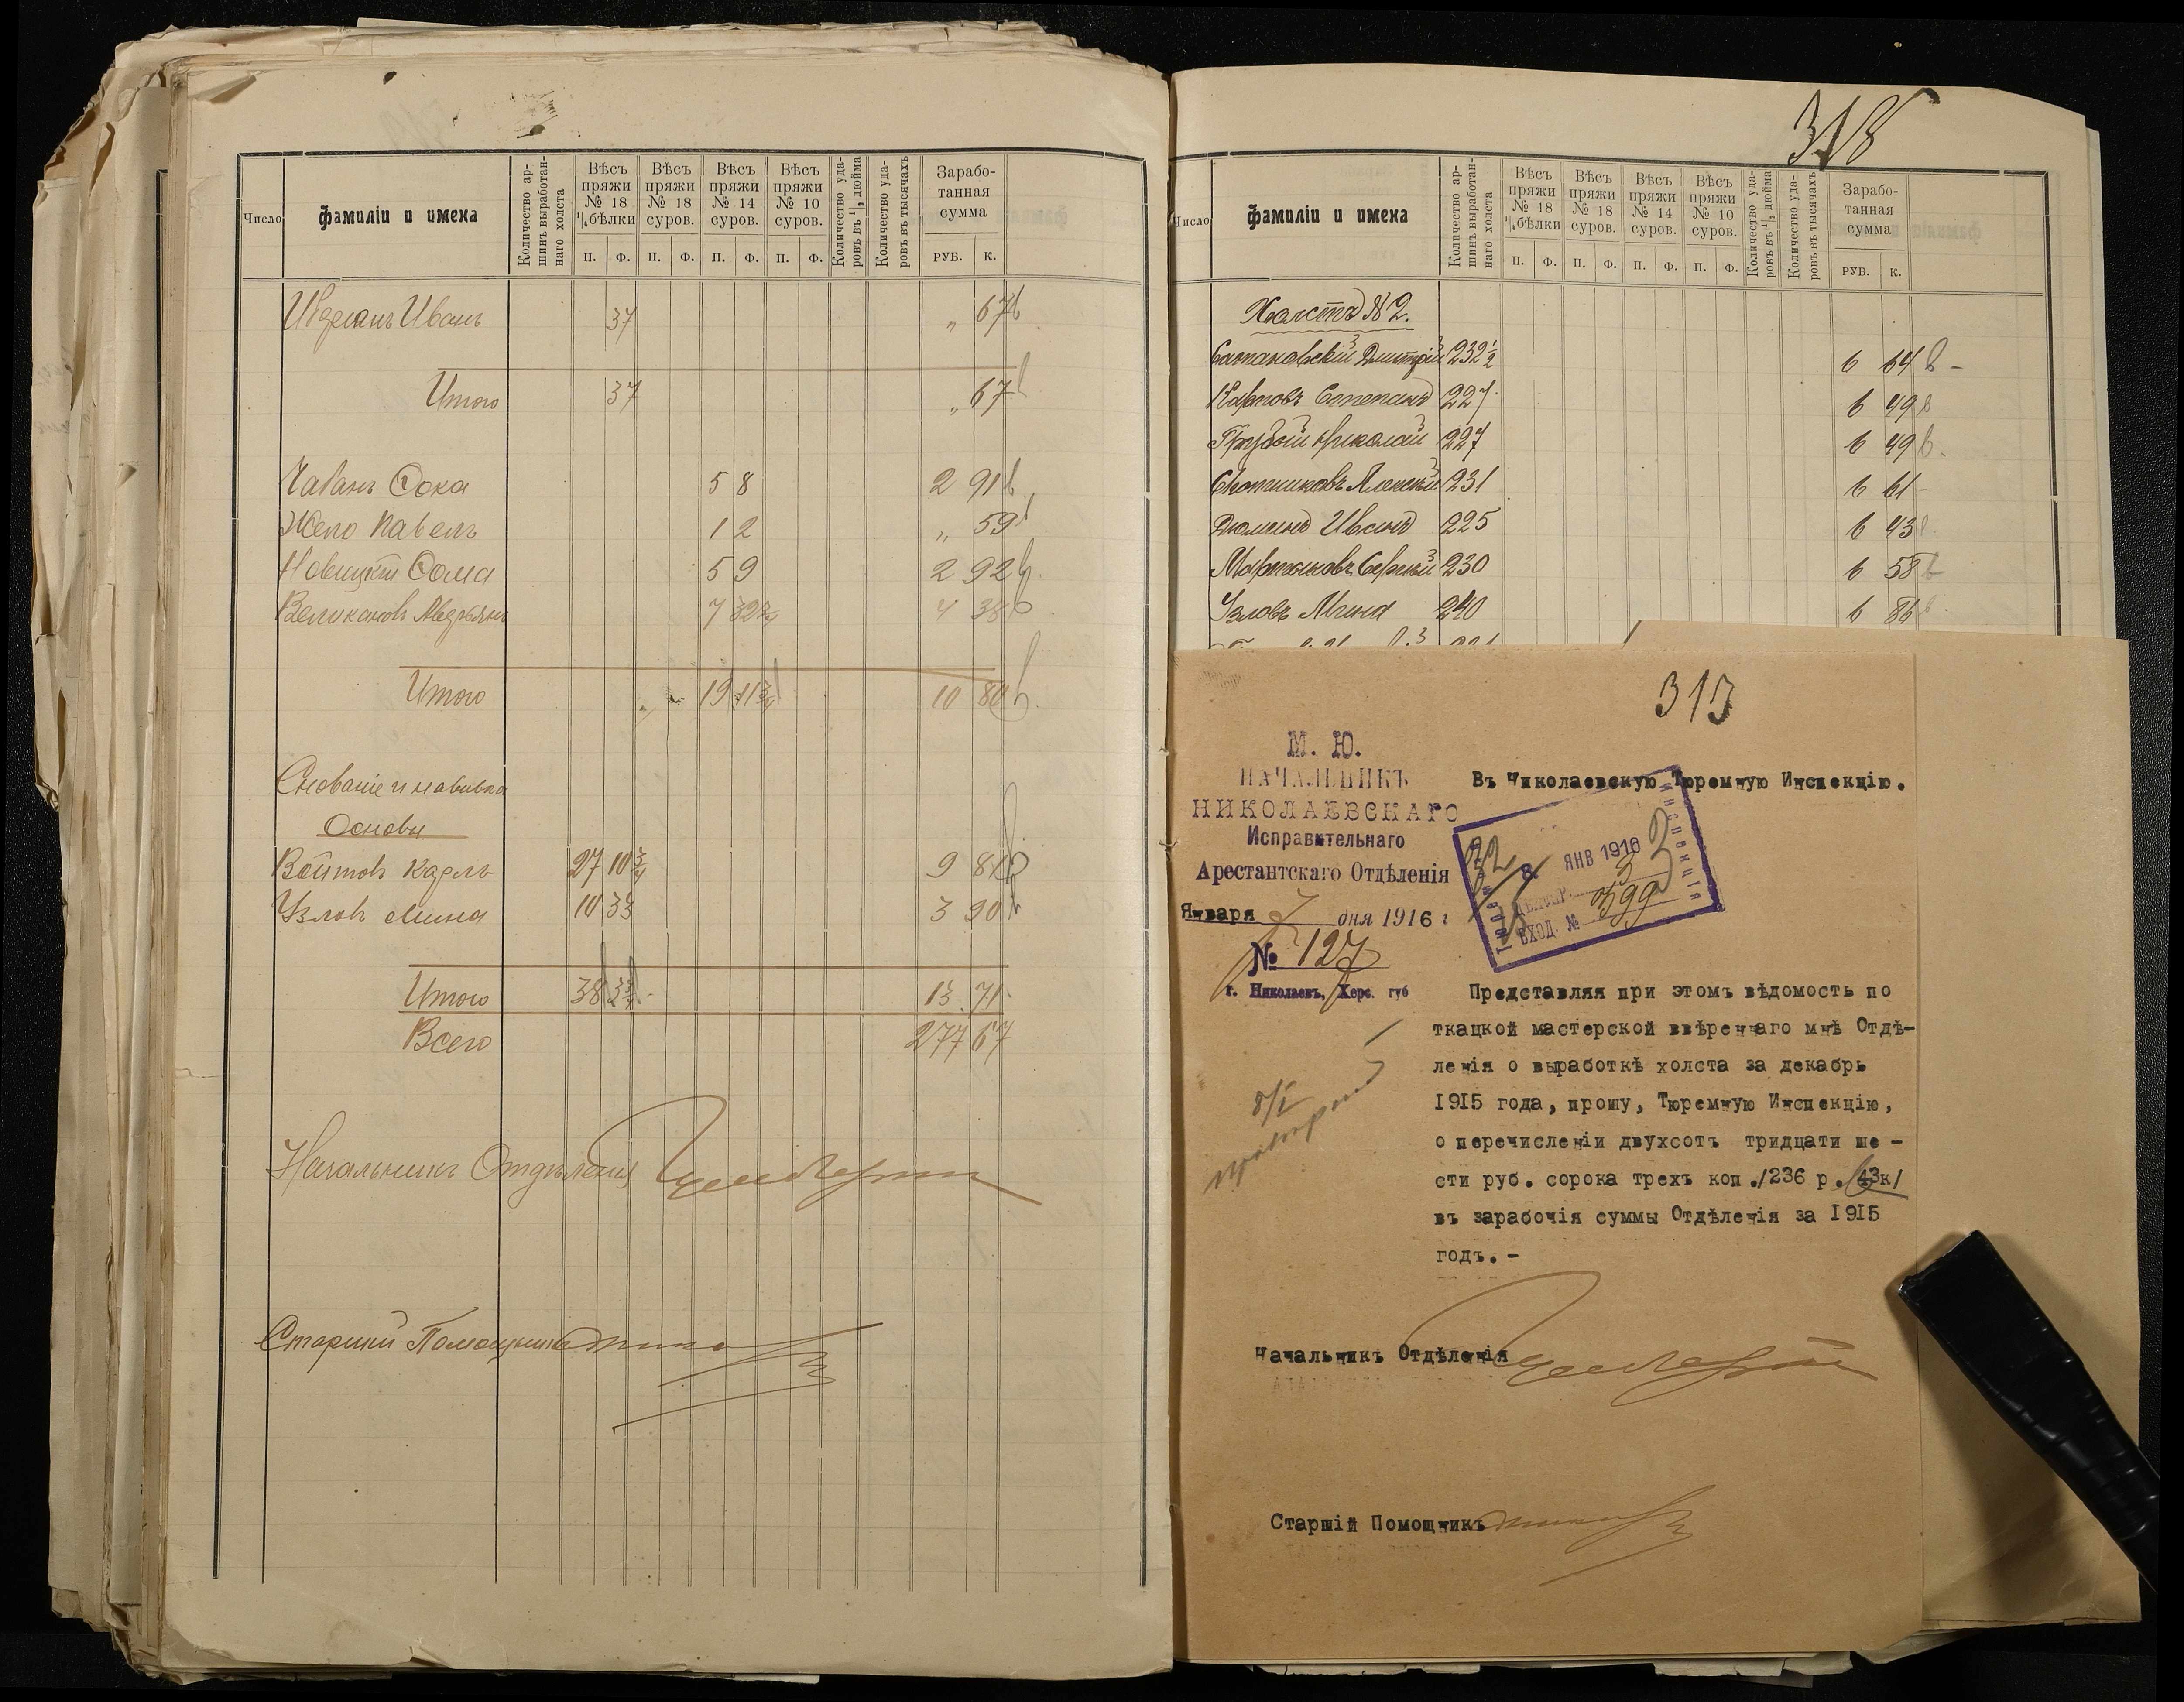 Число
Фамиліи и имена
Количество ар-
шинъ выработан-
наго холста
Вѣсъ пряжи № 18 ½ бѣлки
Вѣсъ пряжи № 18 суров.
Вѣсъ пряжи № 14 суров.
Вѣсъ пряжи № 10 суров.
Количество уда-
ровъ въ ¼ дюйма
Количество уда-
ровъ въ тысячахъ
Зарабо-
танная
сумма
П. Ф. П. Ф. П. Ф. П. Ф. РУБ. К.
Иванъ 37 „ 67
Итого 37 „ 67
Чаванъ Фока 5 8 2 91
Жело Павелъ 1 2 „ 59
Новицкій Фома 5 9 2 92
Великановъ 7 32¾ 4 38
Итого 19 11¾ 10 80
Снованіе и навивка
Основы
Войтовъ Карлъ 27 10¾ 9 81
Узловъ Мина 10 33 3 90
Итого 38 3¾ 13 71
Всего 277 67
Начальникъ Отдѣленія
Старшій Помощникъ
318
Число
Фамиліи и имена
Количество ар-
шинъ выработан-
наго холста
Вѣсъ пряжи № 18 ½ бѣлки
Вѣсъ пряжи № 18 суров.
Вѣсъ пряжи № 14 суров.
Вѣсъ пряжи № 10 суров.
Количество уда-
ровъ въ ¼ дюйма
Количество уда-
ровъ въ тысячахъ
Зарабо-
танная
сумма
П. Ф. П. Ф. П. Ф. П. Ф. РУБ. К.
Холстъ № 2.
Дмитрій 232½ 6 64
Карповъ Степанъ 227 6 49
Грубый Николай 227 6 49
Алексѣй 231 6 61
Иванъ 225 6 43
Мартыновъ Сергѣй 230 6 58
Узловъ Мина 240 6 86
313
М. Ю.
НАЧАЛЬНИКЪ
НИКОЛАЕВСКАГО
Исправительнаго
Арестантскаго Отдѣленія
Января 7 дня 1916 г
№ 127
г. Николаевъ, Херс. губ
Въ Николаевскую Тюремную Инспекцію.
8 ЯНВ 1916
ВХОД. № 399
Представляя при этомъ вѣдомость по
ткацкой мастерской ввѣреннаго мнѣ Отдѣ-
ленія о выработкѣ холста за декабрь
1915 года, прошу, Тюремную Инспекцію,
о перечисленіи двухсотъ тридцати ше -
сти руб. сорока трехъ коп./236 р. 43к/
въ зарабочія суммы Отдѣленія за 1915
годъ.-
8/I
Начальникъ Отдѣленія
Старшій Помощникъ